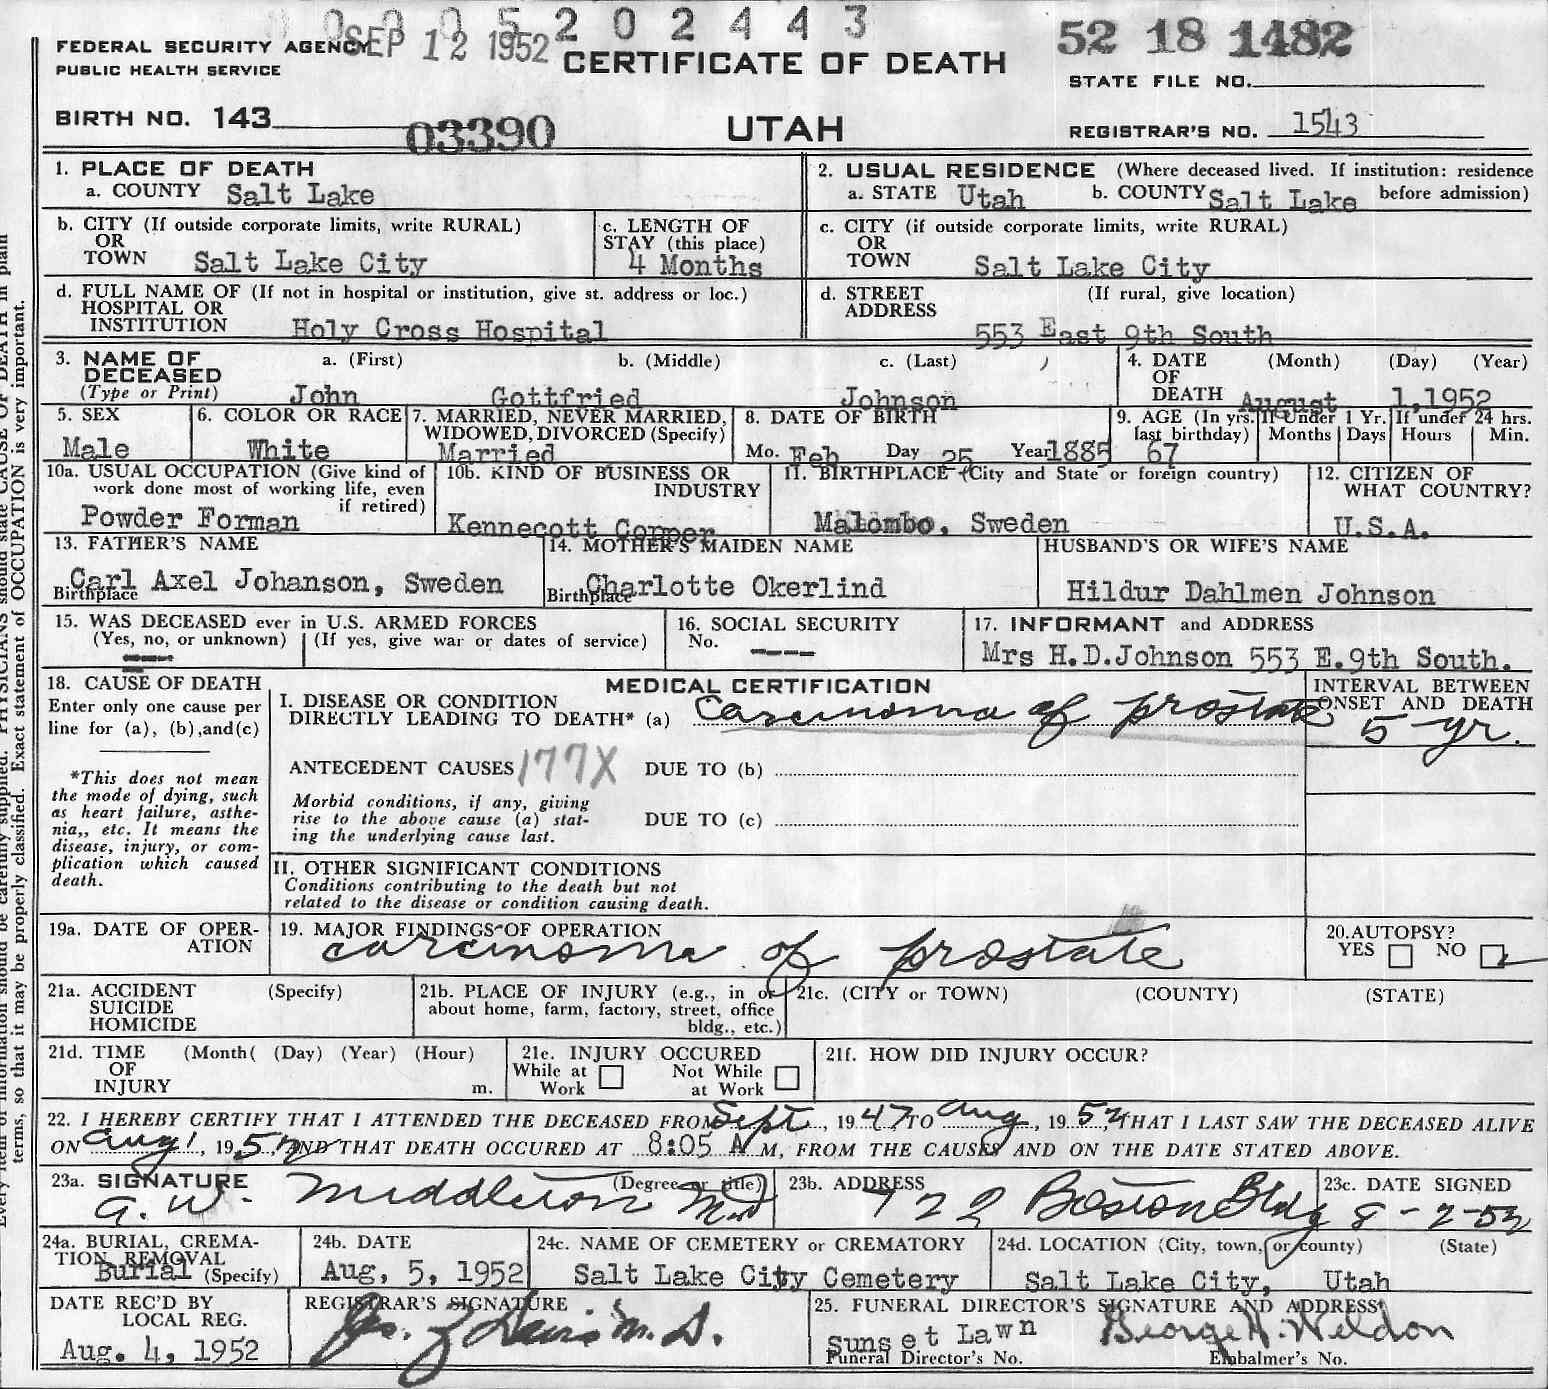 0 0 0 5 2 0 2 4 4 3
SEP 12 1952
52 18 1482
FEDERAL SECURITY AGENCY
PUBLIC HEALTH SERVICE
CERTIFICATE OF DEATH
STATE FILE NO.
BIRTH NO. 143
03390
UTAH
REGISTRAR'S NO. 1543
1. PLACE OF DEATH
a. COUNTY Salt Lake
2. USUAL RESIDENCE (Where deceased lived. If institution: residence
a. STATE Utah b. COUNTY Salt Lake before admission)
b. CITY (If outside corporate limits, write RURAL)
OR
TOWN Salt Lake City
c. LENGTH OF
STAY (this place)
4 Months
c. CITY (if outside corporate limits, write RURAL)
OR
TOWN Salt Lake City
d. FULL NAME OF (If not in hospital or institution, give st. address or loc.)
HOSPITAL OR
INSTITUTION Holy Cross Hospital
d. STREET (If rural, give location)
ADDRESS
553 East 9th South
3. NAME OF a. (First) b. (Middle) c. (Last)
DECEASED
(Type or Print) John Gottfried Johnson
4. DATE (Month) (Day) (Year)
OF
DEATH August 1,1952
5. SEX
Male
6. COLOR OR RACE
White
7. MARRIED, NEVER MARRIED,
WIDOWED, DIVORCED (Specify)
Married
8. DATE OF BIRTH
Mo. Feb Day 25 Year 1885
9. AGE (In yrs. If Under 1 Yr. If under 24 hrs.
last birthday) Months Days Hours Min.
67
10a. USUAL OCCUPATION (Give kind of
work done most of working life, even
if retired)
Powder Forman
10b. KIND OF BUSINESS OR
INDUSTRY
Kennecott Copper
11. BIRTHPLACE (City and State or foreign country)
Malombo, Sweden
12. CITIZEN OF
WHAT COUNTRY?
U.S.A.
13. FATHER'S NAME
Carl Axel Johanson, Sweden
Birthplace
14. MOTHER'S MAIDEN NAME
Charlotte Okerlind
Birthplace
HUSBAND'S OR WIFE'S NAME
Hildur Dahlmen Johnson
15. WAS DECEASED ever in U.S. ARMED FORCES
(Yes, no, or unknown) (If yes, give war or dates of service)
16. SOCIAL SECURITY
No. ----
17. INFORMANT and ADDRESS
Mrs H.D.Johnson 553 E.9th South.
18. CAUSE OF DEATH
Enter only one cause per
line for (a), (b),and(c)
*This does not mean
the mode of dying, such
as heart failure, asthe-
nia,, etc. It means the
disease, injury, or com-
plication which caused
death.
MEDICAL CERTIFICATION
I. DISEASE OR CONDITION
DIRECTLY LEADING TO DEATH* (a) Carcinoma of prostate
INTERVAL BETWEEN
ONSET AND DEATH
5 yr.
ANTECEDENT CAUSES 177X DUE TO (b)
Morbid conditions, if any, giving
rise to the above cause (a) stat-
ing the underlying cause last.
DUE TO (c)
II. OTHER SIGNIFICANT CONDITIONS
Conditions contributing to the death but not
related to the disease or condition causing death.
19a. DATE OF OPER-
ATION
19. MAJOR FINDINGS OF OPERATION
carcinoma of prostate
20.AUTOPSY?
YES NO
21a. ACCIDENT (Specify)
SUICIDE
HOMICIDE
21b. PLACE OF INJURY (e.g., in or
about home, farm, factory, street, office
bldg., etc.)
21c. (CITY or TOWN) (COUNTY) (STATE)
21d. TIME (Month( (Day) (Year) (Hour)
OF
INJURY m.
21e. INJURY OCCURED
While at Not While
Work at Work
21f. HOW DID INJURY OCCUR?
22. I HEREBY CERTIFY THAT I ATTENDED THE DECEASED FROM Sept, 1947 TO Aug, 1952, THAT I LAST SAW THE DECEASED ALIVE
ON Aug 1, 1952 AND THAT DEATH OCCURED AT 8:05 A M, FROM THE CAUSES AND ON THE DATE STATED ABOVE.
23a. SIGNATURE (Degree or title)
G. W. Middleton MD
23b. ADDRESS
722 Boston Bldg
23c. DATE SIGNED
8-2-52
24a. BURIAL, CREMA-
TION REMOVAL
Burial (Specify)
24b. DATE
Aug, 5, 1952
24c. NAME OF CEMETERY or CREMATORY
Salt Lake City Cemetery
24d. LOCATION (City, town, or county) (State)
Salt Lake City, Utah
DATE REC'D BY
LOCAL REG.
Aug. 4, 1952
REGISTRAR'S SIGNATURE
M.D.
25. FUNERAL DIRECTOR'S SIGNATURE AND ADDRESS
Sunset Lawn George H. Weldon
Funeral Director's No. Embalmer's No.
terms, so that it may be properly classified. Exact statement of OCCUPATION is very important.